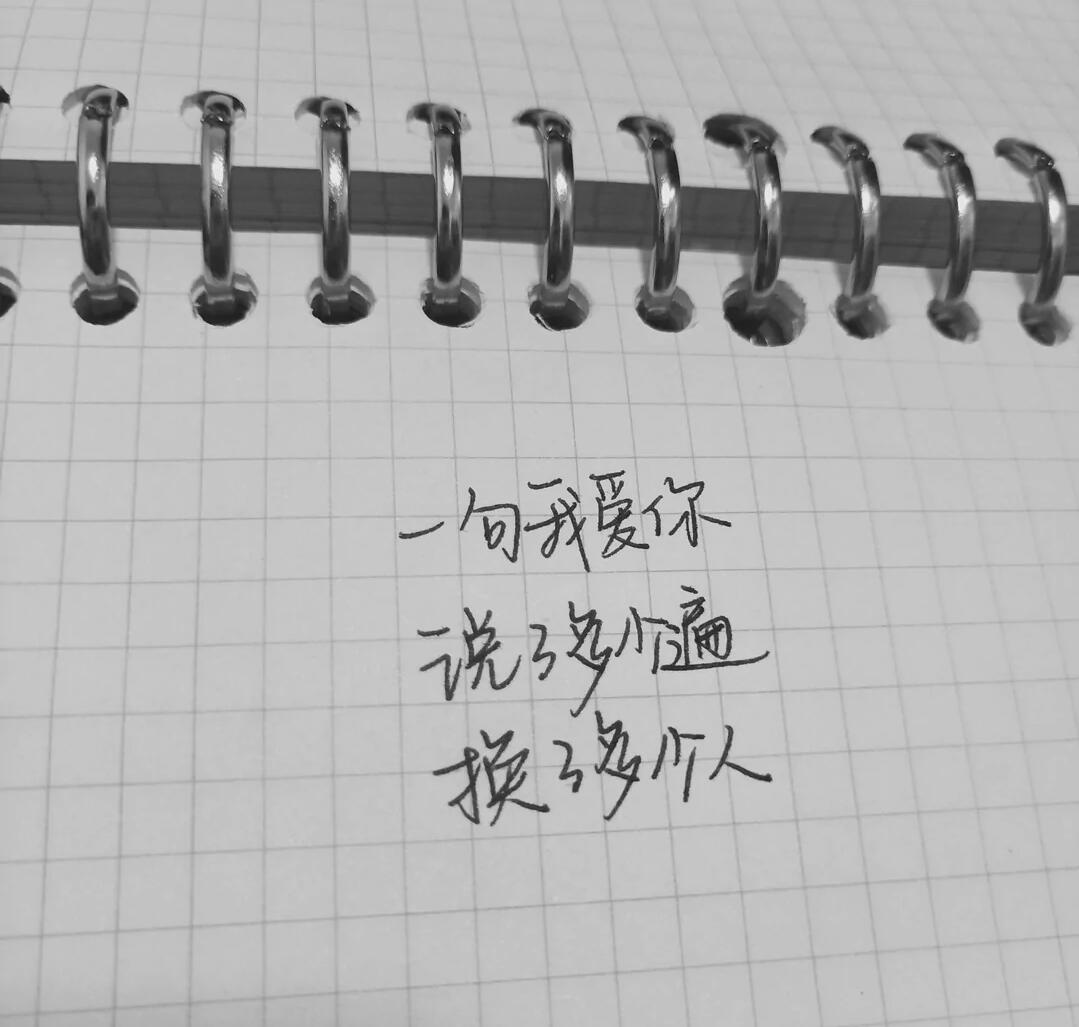 一句我爱你
说了多少遍
换了多少个人